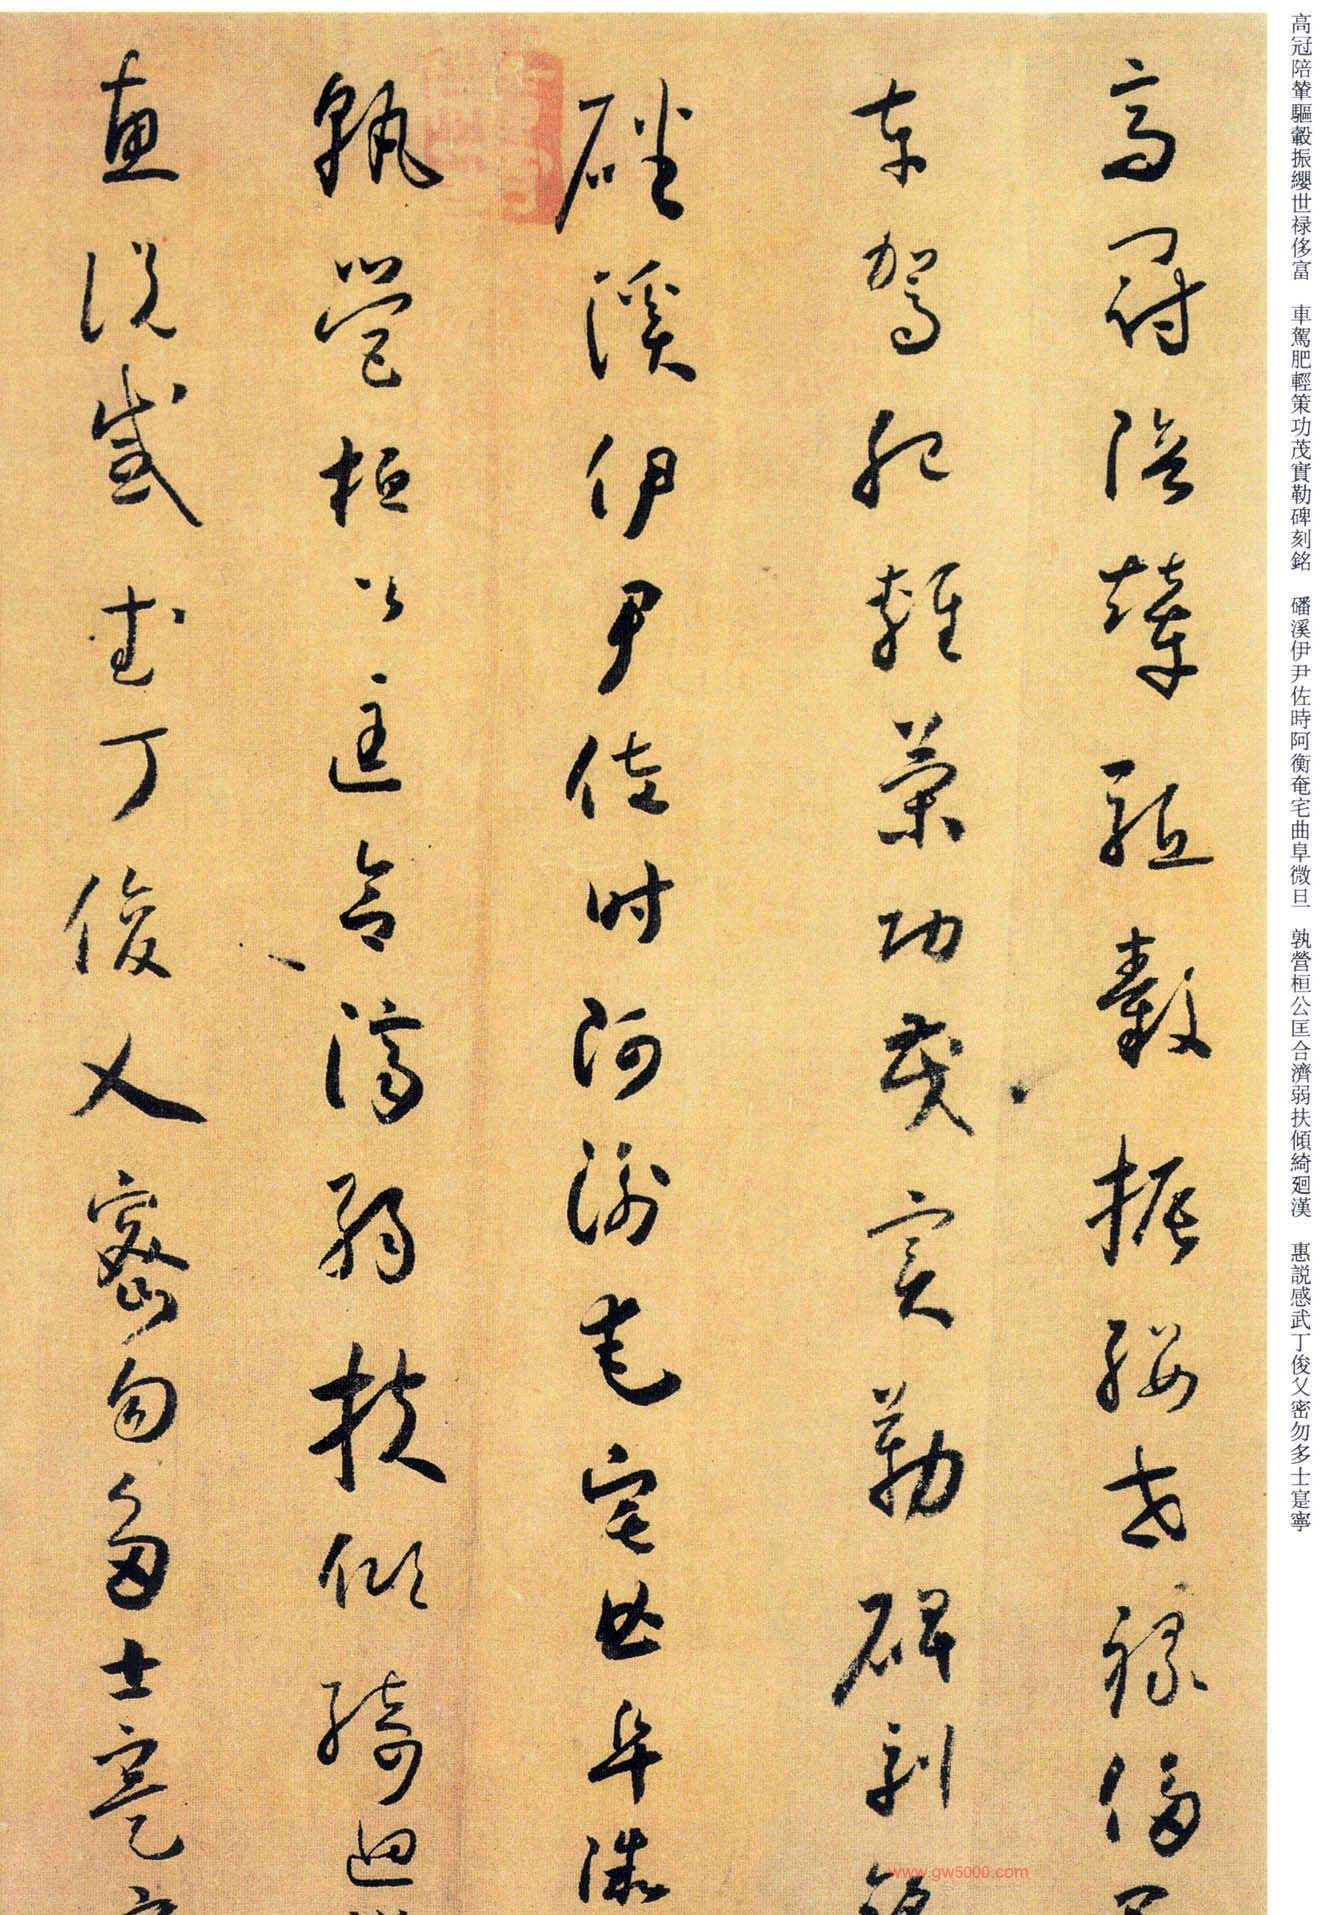 高冠陪輦驅轂振纓世禄侈富　車駕肥輕策功茂實勒碑刻銘　磻溪伊尹佐時阿衡奄宅曲阜微旦　孰營桓公匡合濟弱扶傾綺廻漢　惠説感武丁俊乂密勿多士寔寧
高冠陪輦驅轂振纓世禄侈
車駕肥輕策功茂實勒碑刻銘
磻溪伊尹佐時阿衡奄宅曲阜微
孰營桓公匡合濟弱扶傾綺迴
惠説感武丁俊乂密勿多士寔
www.gw5000.com